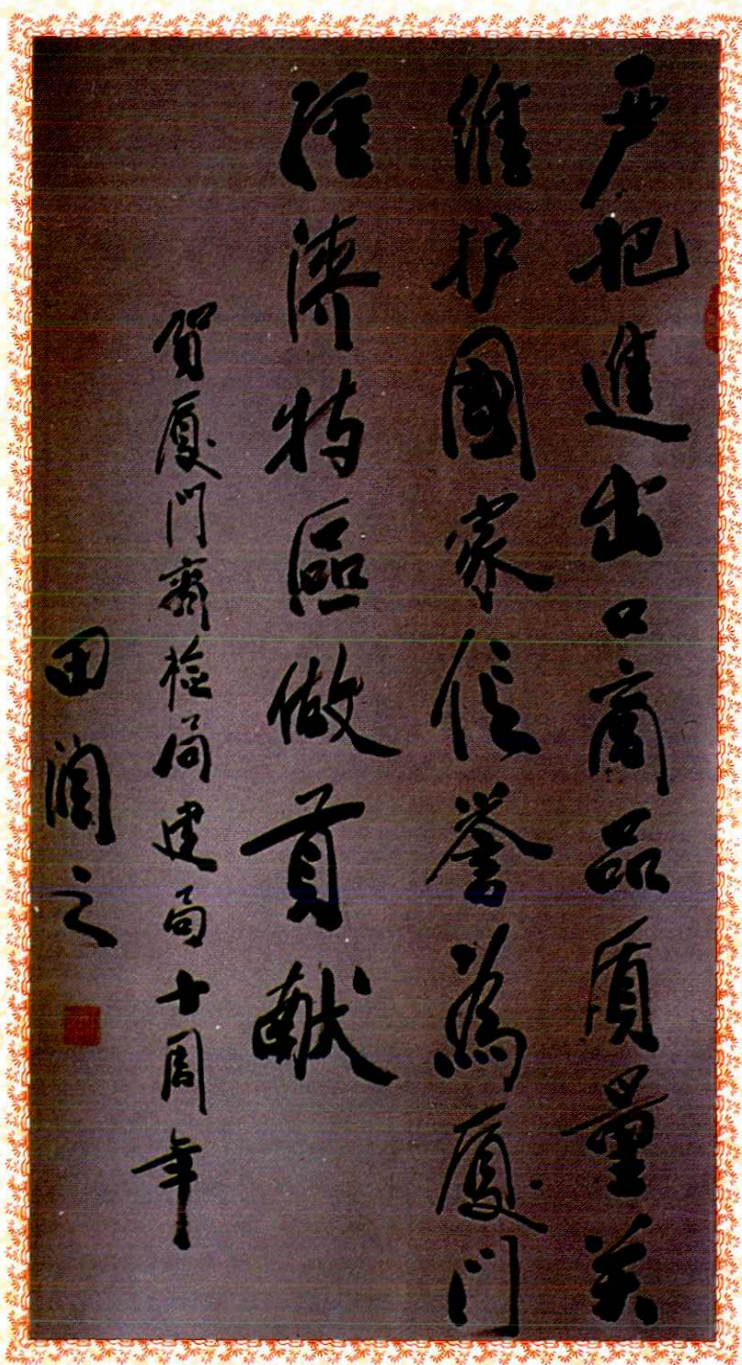 严把進出口商品质量关
维护國家信誉為厦门
经济特區做贡献
贺厦门商检局建局十周年
田润之